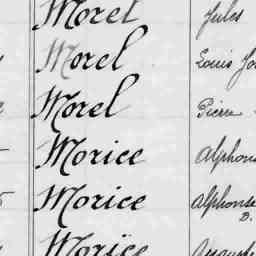 Morel Jules
Morel Louis
Morel Pierre
Morice
Morice Alphonse
D.
Morice